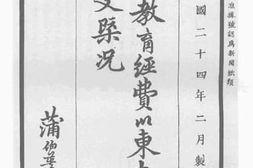 號認爲新聞紙類
國二十四年二月製
教育經費以東
槩况
蒲